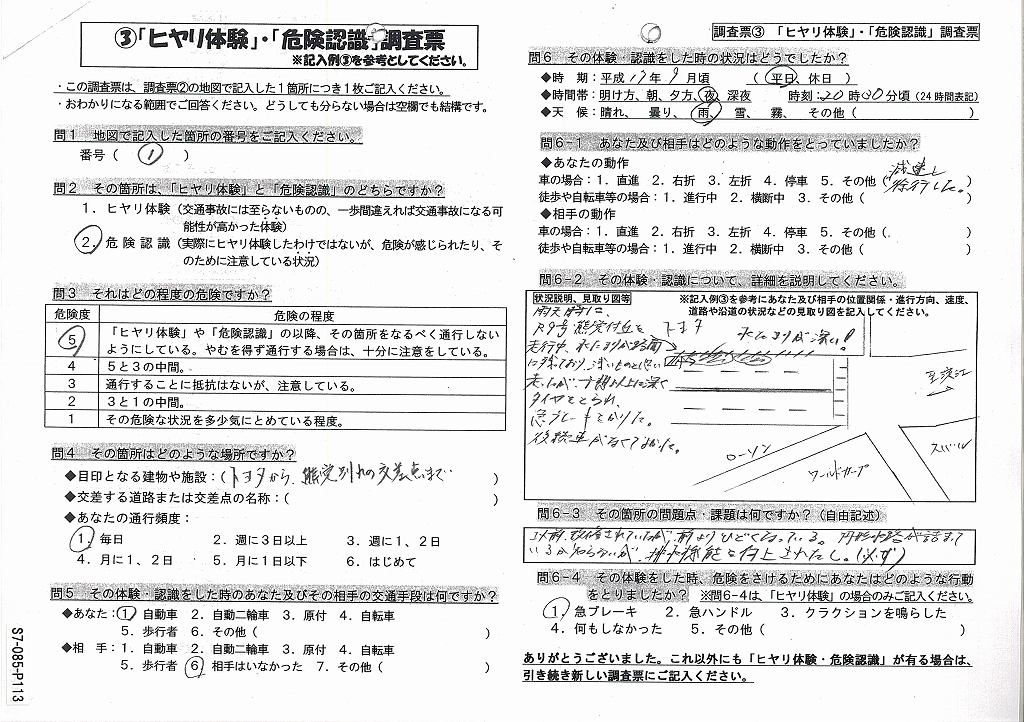 ③「ヒヤリ体験」・「危険認識」調査票
※記入例③を参考としてください。
・この調査票は、調査票②の地図で記入した１箇所につき１枚ご記入ください。
・おわかりになる範囲でご回答ください。どうしても分らない場合は空欄でも結構です。
問１ 地図で記入した箇所の番号をご記入ください。
番号（ 1 ）
問２ その箇所は、「ヒヤリ体験」と「危険認識」のどちらですか？
１．ヒヤリ体験（交通事故には至らないものの、一歩間違えれば交通事故になる可
能性が高かった体験）
２．危険認識（実際にヒヤリ体験したわけではないが、危険が感じられたり、そ
のために注意している状況）
問３ それはどの程度の危険ですか？
危険度 危険の程度
５ 「ヒヤリ体験」や「危険認識」の以降、その箇所をなるべく通行しない
ようにしている。やむを得ず通行する場合は、十分に注意をしている。
４ ５と３の中間。
３ 通行することに抵抗はないが、注意している。
２ ３と１の中間。
１ その危険な状況を多少気にとめている程度。
問４ その箇所はどのような場所ですか？
◆目印となる建物や施設：（トヨタから、熊党別れの交差点まで ）
◆交差する道路または交差点の名称：（ ）
◆あなたの通行頻度：
１．毎日 ２．週に３日以上 ３．週に１、２日
４．月に１、２日 ５．月に１日以下 ６．はじめて
問５ その体験・認識をした時のあなた及びその相手の交通手段は何ですか？
◆あなた：１．自動車 ２．自動二輪車 ３．原付 ４．自転車
５．歩行者 ６．その他（ ）
◆相 手：１．自動車 ２．自動二輪車 ３．原付 ４．自転車
５．歩行者 ６．相手はいなかった ７．その他（ ）
S7-085-P113
調査票③ 「ヒヤリ体験」・「危険認識」調査票
問６ その体験・認識をした時の状況はどうでしたか？
◆時 期：平成 17年 9月頃 （ 平日、休日 ）
◆時間帯：明け方、朝、夕方、夜、深夜 時刻：20時00分頃（24時間表記）
◆天 候：晴れ、 曇り、 雨、 雪、 霧、 その他（ ）
問６-１ あなた及び相手はどのような動作をとっていましたか？
◆あなたの動作
車の場合：１．直進 ２．右折 ３．左折 ４．停車 ５．その他（減速し
徐行した。）
徒歩や自転車等の場合：１．進行中 ２．横断中 ３．その他（ ）
◆相手の動作
車の場合：１．直進 ２．右折 ３．左折 ４．停車 ５．その他（. ）
徒歩や自転車等の場合：１．進行中 ２．横断中 ３．その他（ ）
問６-２ その体験・認識について、詳細を説明してください。
状況説明、見取り図等
※記入例③を参考にあなた及び相手の位置関係・進行方向、速度、
道路や沿道の状況などの見取り図を記入してください。
雨天時に、
R9号 熊党付近を
走行中、水たまりが路面
に残っており、浅いものと思い
走ったが、予想以上に深く
タイヤをとられ、
急ブレーキをかけた。
後続車がなくてよかった。
トヨタ
水たまりが深い！
ローソン
ワールドオーブ
スバル
問６-３ その箇所の問題点・課題は何ですか？（自由記述）
以前、改修されていたが、前よりひどくなっている。円形水路が詰まって
いるか知らないが、排水機能を向上されたし。（必ず）
問６-４ その体験をした時、危険をさけるためにあなたはどのような行動
をとりましたか？ ※問６-４は、「ヒヤリ体験」の場合のみご記入ください。
１．急ブレーキ ２．急ハンドル ３．クラクションを鳴らした
４．何もしなかった ５．その他（ ）
ありがとうございました。これ以外にも「ヒヤリ体験・危険認識」が有る場合は、
引き続き新しい調査票にご記入ください。